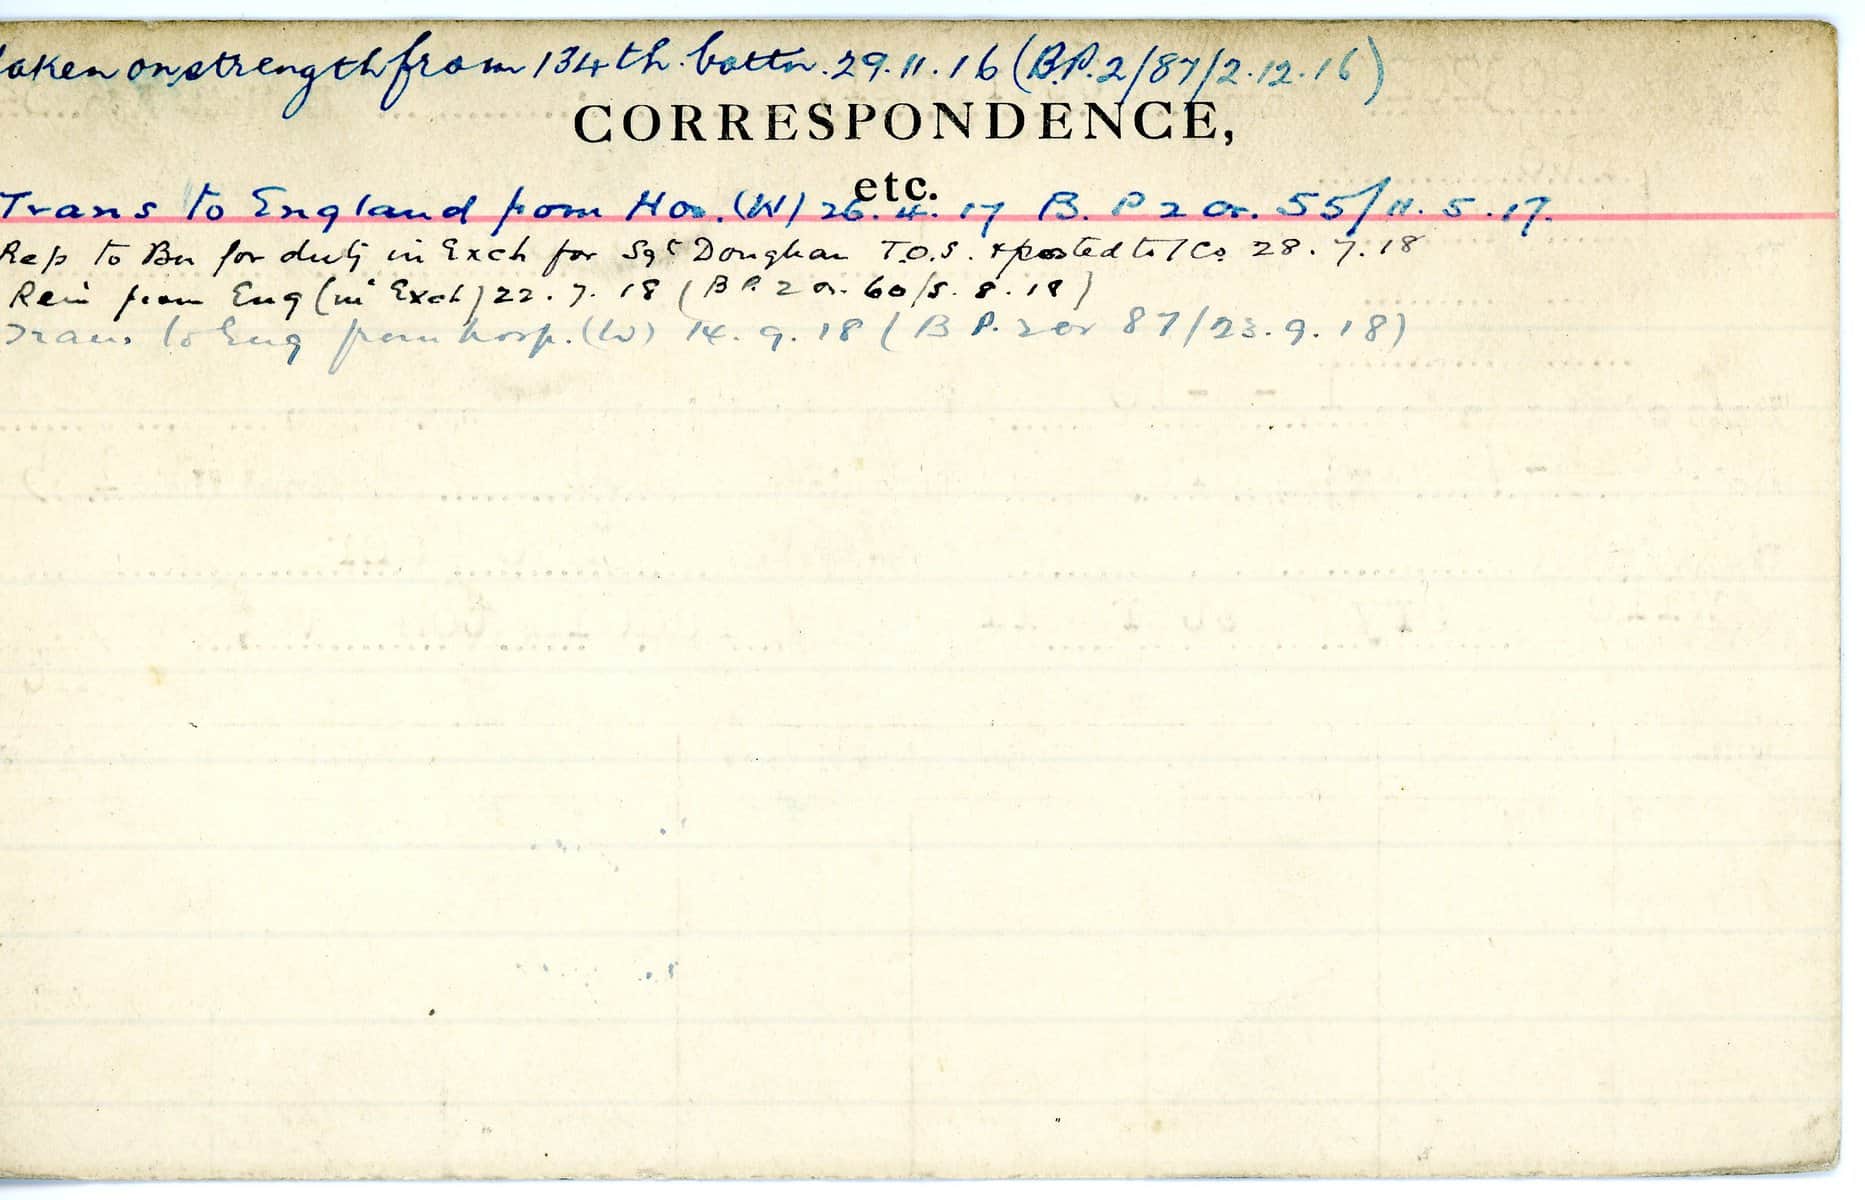 aken on strength from 134th. battn. 29.11.16 (B.P.2/87/2.12.16)
CORRESPONDENCE,
etc.
Trans to England from Hos. (W) 26.4.17 B. P 2 or. 55/11.5.17.
Rep to Bn for duty in Exch for Sgt Doughan T.O.S. & posted to 1 Co. 28.7.18
Rein from Eng (in Exch) 22.7.18 (B P. 2 or. 60/5.8.18)
Trans to Eng from hosp. (W) 14.9.18 (B P. 2 or 87/23.9.18)